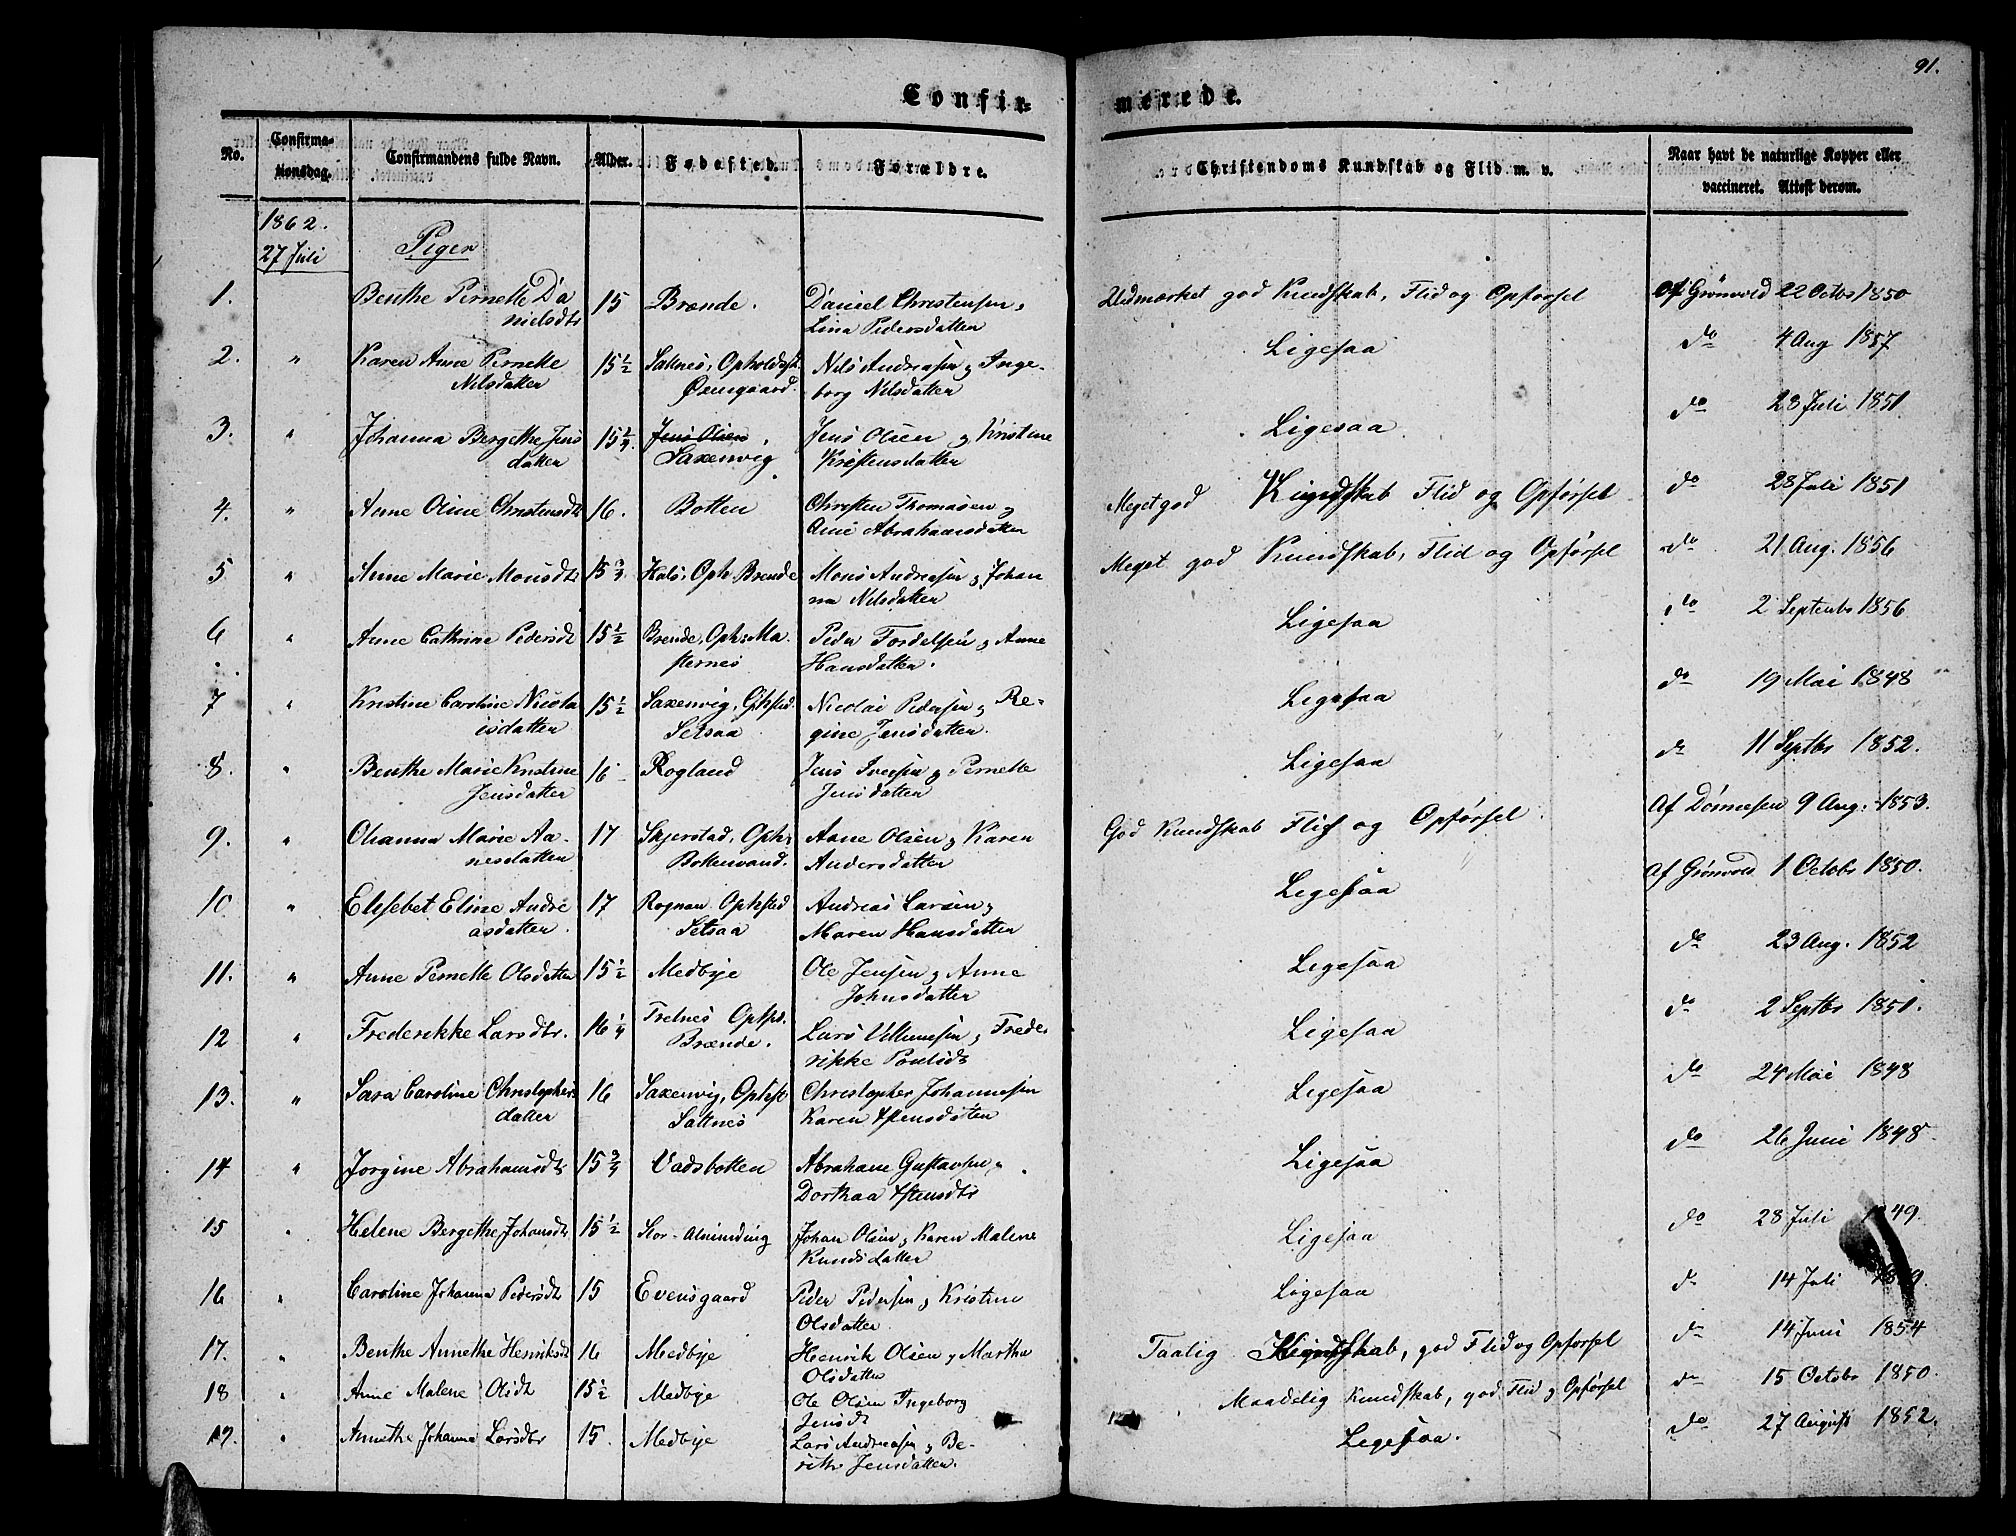 91.
Confir=
merede.
No.
Confirma-
tionsdag.
Confirmandens fulde Navn.
Alder.
Fødested.
Forældre.
Christendoms Kundskab og Flid m. v.
Naar havt de naturlige Kopper eller
vaccineret. Attest derom.
1862.
27 Juli
Piger
1. Benthe Pernelle Da
nielsdtr 15 Brænde. Daniel Christensen,
Lina Pedersdatter Udmærket god Kundskab, Flid og Opførsel Af Grönvold 22 Octbr 1850
2. " Karen Anne Pernelle
Nilsdatter 15½ Saltnes, Opholdsst.
Øxengaard. Nils Andreasen og Inge-
borg Nilsdatter Ligesaa do 4 Aug 1857
3. " Johanna Bergethe Jens
datter 15¼ Jens Olsen
Saxenvig Jens Olsen og Kristine
Kristensdatter Ligesaa do 28 Juli 1851
4. " Anne Oline Christensdt 16. Botten Christen Thomasen og
Abrahamsdatter Meget god Kundskab Flid og Opførsel do 28 Juli 1851
5 " Anne Marie Monsdtr 15¾ Hals, Oph. Brende Mons Andreasen og Johan
na Nilsdatter Meget god Kundskab, Flid og Opførsel do 21 Aug. 1856
6 " Anne Cathrine Pedersdt 15½ Brende, Oph:
Peder Tordelsen og Anne
Hansdatter. Ligesaa do 2 Septembr 1856
7 " Kristine Caroline Nicola
isdatter 15½ Saxenvig,
Setsaa Nicolai Pedersen og Re-
gine Jensdatter. Ligesaa do 19 Mai 1848
8. " Benthe Marie Kristine
Jensdatter 16 Rogland Jens Iversen og Pernelle
Jensdatter Ligesaa do 11 Septbr 1852.
9. " Olianna Marie Aa-
nesdatter 17 Skjerstad, Oph:
Bottenvand. Aane Olsen og Karen
Andersdatter God Kundskab Flid og Opførsel. Af Dönnesen 9 Aug. 1853.
10 " Elisebet Eline Andre
asdatter. 17 Rognan Ophsted
Setsaa Andreas Larsen og
Maren Hansdatter Ligesaa Af Grönvold 1 Octobr 1850.
11. " Anne Pernelle Olsdatter 15½ Medbye Ole Jensen og Anne
Johnsdatter Ligesaa do 23 Aug. 1852
12 " Frederikke Larsdtr. 16¼
Brænde. Lars Villumsen og Frede
rikke Poulsdtr Ligesaa do 2 Septbr 1851.
13. " Sara Caroline Christophers
datter 16 Saxenvig, Ophst
Saltnes Christopher Johannesen
Karen Estensdatter Ligesaa do 24 Mai 1848
14 " Jorgine Abrahamsdtr 15¾ Vadsbotten Abraham Gustavsen og
Dorthaa Estensdtr Ligesaa do 26 Juni 1848.
15 " Helene Bergethe Johansdt 15½ Stor-Alminding Johan Olsen og Karen Malene
Knudsdatter Ligesaa do 28 Juli 1849.
16 " Caroline Johanna Pedersdt 15 Evensgaard Peder Pedersen og Kristine
Olsdatter Ligesaa do 14 Juli
17. " Benthe Annethe Henriksdt 16 Medbye Henrik Olsen og Martha
Olsdatter Taalig Kundskab, god Flid og Opførsel do 14 Juni 1854
18 " Anne Malene Olsdt 15½ Medbye Ole Olsen Ingeborg
Jensdt Maadelig Kundskab, god Flid og Opførsel do 15 Octobr 1850.
19. " Annethe Johanna Larsdtr 15. Medbye Lars Andreasen og Be-
rithe Jensdatter. Ligesaa. do 27 August 1852.